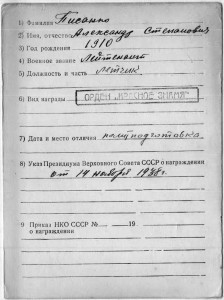 1) Фамилия Писанко
2) Имя, отчество Александр Степанович
3) Год рождения 1910
4) Военное звание Лейтенант
5) Должность и часть летчик
6) Вид награды ОРДЕН „КРАСНОЕ ЗНАМЯ“
7) Дата и место отличия полит подготовка
8) Указ Президиума Верховного Совета СССР о награждении
от 14 ноября 1938 г.
9 Приказ НКО СССР № 19
о награждении